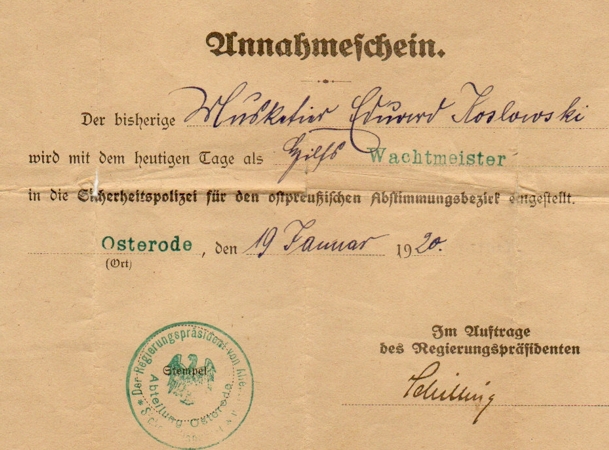 Annahmeschein.
Der bisherige Musketier Eduard Koslowski
wird mit dem heutigen Tage als Hilfs Wachtmeister
in die Sicherheitspolizei für den ostpreußischen Abstimmungsbezirk eingestellt.
Osterode, den 19 Januar 1920.
(Ort)
Im Auftrage
des Regierungspräsidenten
Schilling
Der Regierungspräsident von
Stempel
Abteilung Osterode